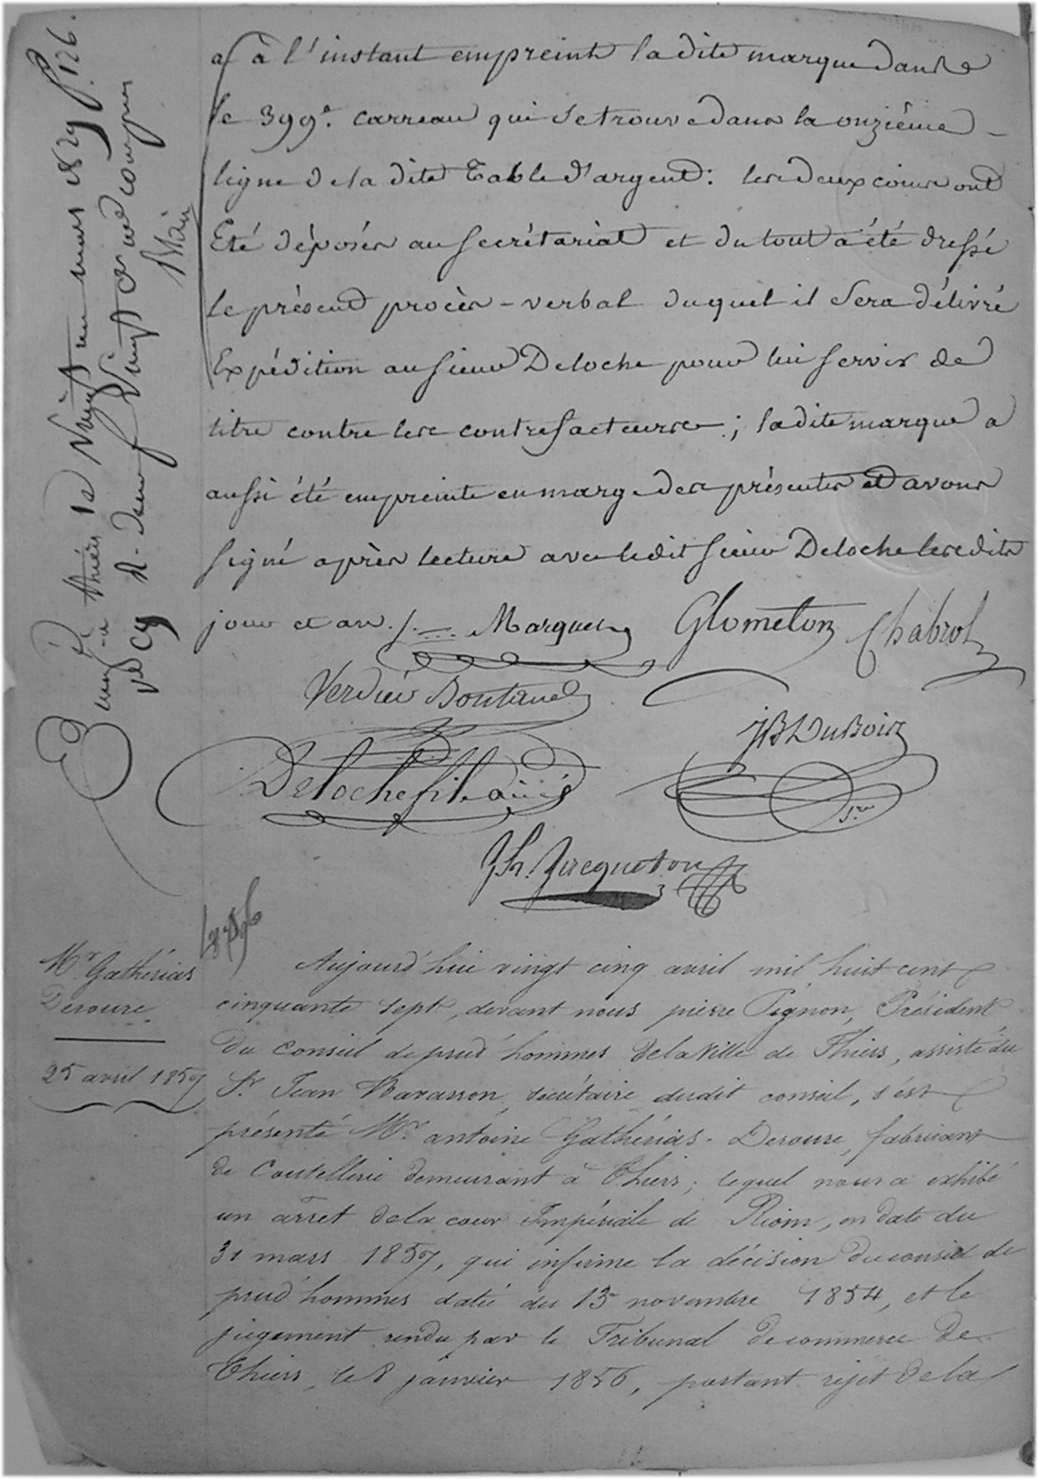 a à l'instant empreint la dite marque dans
le 399e. carreau qui se trouve dans la onzième
ligne de la dite Table d'argent: les deux coins ont
Eté déposés au secrétariat et du tout a été dressé
le présent procès-verbal duquel il sera délivré
Expédition au sieur Deloche pour lui servir de
titre contre les contrefacteurs; la dite marque a
aussi été empreinte en marge des présentes et avons
signé après lecture avec le dit sieur Deloche les dits
jour et an ./.
Glometon Chabrol
Verdier
JB DuBois
Deloche fils ainé
Jh. Jacqueton
Mr Gathérias
Deroure
25 avril 1857
Aujourd'hui vingt cinq avril mil huit cent
cinquante sept, devant nous pierre Pignon, Président
du Conseil de prud'hommes de la Ville de Thiers, assisté du
Sr Jean secrétaire dudit conseil, s'est
présenté Mr antoine Gathérias-Deroure, fabricant
de Coutellerie demeurant à Thiers; lequel nous a exhibé
un arrêt de la cour Impériale de Riom, en date du
31 mars 1857, qui infirme la décision du conseil de
prud'hommes daté du 13 novembre 1854, et le
jugement rendu par le Tribunal de commerce de
Thiers, le 8 janvier 1856, portant rejet de la